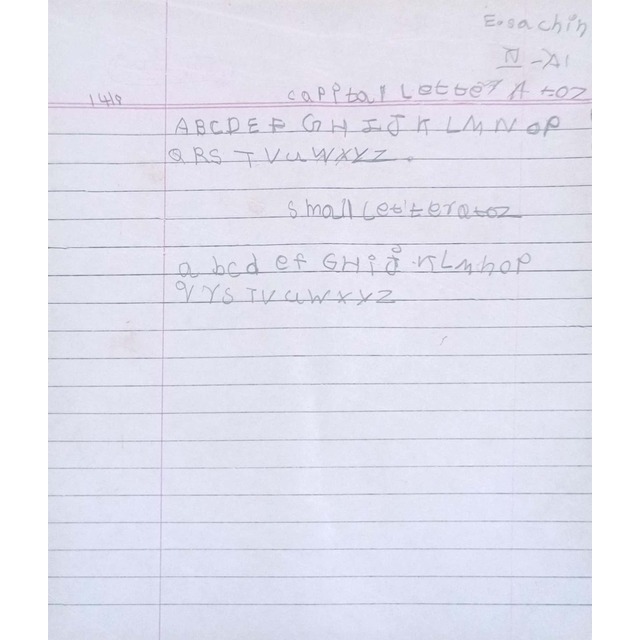 E. sachin
IV - A1
14/9 capital Letter A to Z
A B C D E F G H I J K L M N O P
Q R S T V U W X Y Z .
small Letter a to z
a b c d e f G H i j K L M n o p
q r Y S T V U W X Y Z